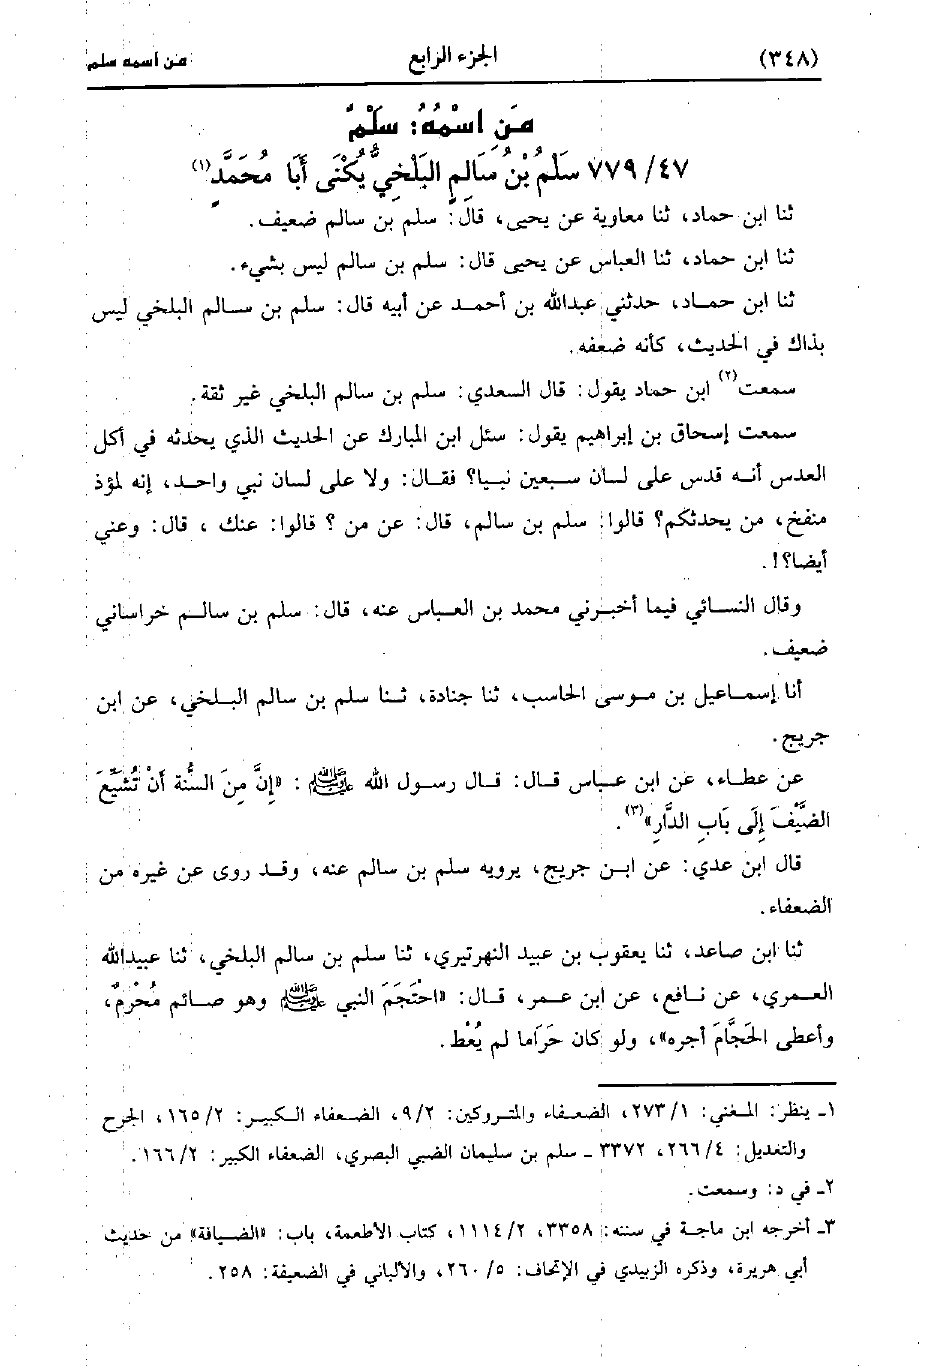 (٣٤٨) الجزء الرابع من اسمه سلم
مَن اسْمُهُ: سَلْمٌ
٧٧٩/٤٧ سَلْمُ بْنُ سَالِمٍ البَلْخِيُّ يُكْنَى أَبَا مُحَمَّدٍ(١)
ثنا ابن حماد، ثنا معاوية عن يحيى، قال: سلم بن سالم ضعيف.
ثنا ابن حماد، ثنا العباس عن يحيى قال: سلم بن سالم ليس بشيء.
ثنا ابن حمـاد، حدثني عبدالله بن أحمـد عن أبيه قال: سلم بن سـالم البلخي ليس
بذاك في الحديث، كأنه ضعفه.
سمعت(٢) ابن حماد يقول: قال السعدي: سلم بن سالم البلخي غير ثقة.
سمعت إسحاق بن إبراهيم يقول: سئل ابن المبارك عن الحديث الذي يحدثه في أكل
العدس أنـه قدس على لسان سـبعين نبـيا؟ فقـال: ولا على لسان نبي واحـد، إنه لمؤذ
منفخ، من يحدثكم؟ قالوا: سلم بن سالم، قال: عن من ؟ قالوا: عنك ، قال: وعني
أيضا؟!.
وقال النسـائي فيما أخبـرني محمد بن العـباس عنه، قال: سلم بن سالـم خراساني
ضعيف.
أنا إسمـاعيل بن مـوسى الحاسب، ثنا جنادة، ثـنا سلم بن سالم البـلخي، عن ابن
جريج.
عن عطاء، عن ابن عبـاس قـال: قـال رسـول الله ﷺ : «إِنَّ مِنَ السُّنة أَنْ تُشَيِّعَ
الضَّيْفَ إِلَى بَابِ الدَّارِ»(٣).
قال ابن عدي: عن ابـن جريج، يرويه سلم بن سالم عنه، وقـد روى عن غيره من
الضعفاء.
ثنا ابن صاعد، ثنا يعقوب بن عبيد النهرتيري، ثنا سلم بن سالم البلخي، ثنا عبيدالله
العـمري، عن نـافع، عن ابن عـمر، قـال: «احْتَجَمَ النبي ﷺ وهو صـائم مُحْرِمٌ،
وأعطى الحَجَّامَ أجره»، ولو كان حَرَاما لم يُعْط.
١ـ ينظر: المـغني: ٢٧٣/١، الضعـفاء والمتـروكين: ٩/٢، الضعفاء الكـبيـر: ١٦٥/٢، الجرح
والتعديل: ٢٦٦/٤، ٣٣٧٢ ـ سلم بن سليمان الضبي البصري، الضعفاء الكبير: ١٦٦/٢.
٢ـ في د: وسمعت.
٣ـ أخرجه ابن ماجة في سننه: ٣٣٥٨، ١١١٤/٢، كتاب الأطعمة، باب: «الضـيافة» من حديث
أبي هريرة، وذكره الزبيدي في الإتحاف: ٢٦٠/٥، والألباني في الضعيفة: ٢٥٨.